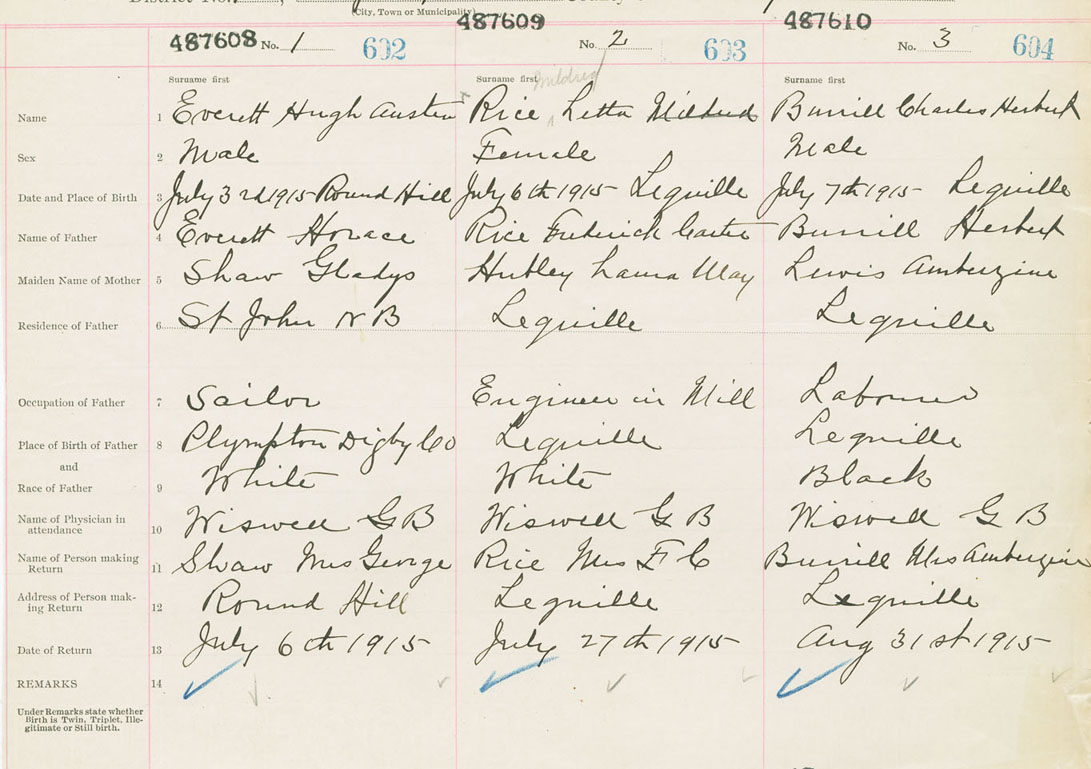 (City, Town or Municipality)
487608 No. 1 602 487609 No. 2 603 487610 No. 3 604
Surname first Surname first Surname first
Mildred
Name 1 Everett Hugh Austen Rice Letta Mildred Burrill Charles Herbert
Sex 2 Male Female Male
Date and Place of Birth 3 July 3rd 1915 Round Hill July 6th 1915 Lequille July 7th 1915 Lequille
Name of Father 4 Everett Horace Rice Frederick Carter Burrill Herbert
Maiden Name of Mother 5 Shaw Gladys Hubley Laura May Lewis Amberzine
Residence of Father 6 St John N B Lequille Lequille
Occupation of Father 7 Sailor Engineer in Mill Labourer
Place of Birth of Father 8 Plympton Digby Co Lequille Lequille
and
Race of Father 9 White White Black
Name of Physician in
attendance 10 Wiswell G B Wiswell G B Wiswell G B
Name of Person making
Return 11 Shaw Mrs George Rice Mrs F C Burrill Mrs Amberzine
Address of Person mak-
ing Return 12 Round Hill Lequille Lequille
Date of Return 13 July 6th 1915 July 27th 1915 Aug 31st 1915
REMARKS 14
Under Remarks state whether
Birth is Twin, Triplet, Ille-
gitimate or Still birth.